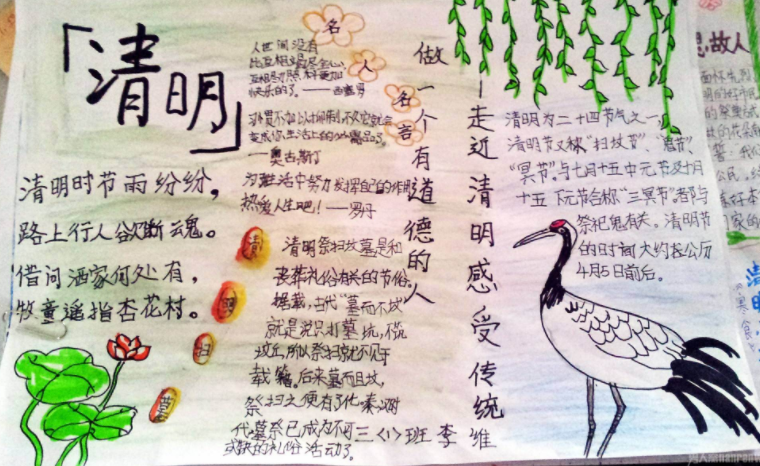 「清明」
清明时节雨纷纷，
路上行人欲断魂。
借问酒家何处有，
牧童遥指杏花村。
名人名言
人世间没有
比互相竭尽全心、
互相照料更加
快乐的了。——西塞罗
习惯不加以抑制，不久它就会
变成你生活上的必需品了。
——奥古斯丁
为在生活中努力发挥自己的作用，
热爱人生吧！——罗丹
清明扫墓
清明祭扫坟墓是和
丧葬礼俗有关的节俗。
据载，古代“墓而不坟”
就是说只打墓坑，不筑
坟丘，所以祭扫就不见于
载籍。后来墓而且坟，
祭扫之便有了依
代墓祭已成为不可
或缺的礼俗活动了。
三〈1〉班 李维
做一个有道德的人
—走近清明感受传统
清明为二十四节气之一，
清明节又称“扫坟节”、“鬼节”、
“冥节”。与七月十五中元节及十月
十五下元节合称“三冥节”。都与
祭祀鬼有关。清明节
的时间大约在公历
4月5日前后。
思故人
清明